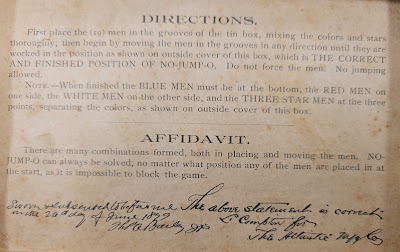 DIRECTIONS.
First place the (19) men in the grooves of the tin box, mixing the colors and stars
thoroughly; then begin by moving the men in the grooves in any direction until they are
worked in the position as shown on outside cover of this box, which is THE CORRECT
AND FINISHED POSITION OF NO-JUMP-O. Do not force the men. No jumping
allowed.
NOTE.—When finished the BLUE MEN must be at the bottom, the RED MEN on
one side, the WHITE MEN on the other side, and the THREE STAR MEN at the three
points, separating the colors, as shown on outside cover of this box.
AFFIDAVIT.
There are many combinations formed, both in placing and moving the men. NO-
JUMP-O can always be solved, no matter what position any of the men are placed in
at the start, as it is impossible to block the game.
Sworn & subscribed to before me The above statement is correct
this 20 day of June 1899 for
The Atlantic Mfg Co